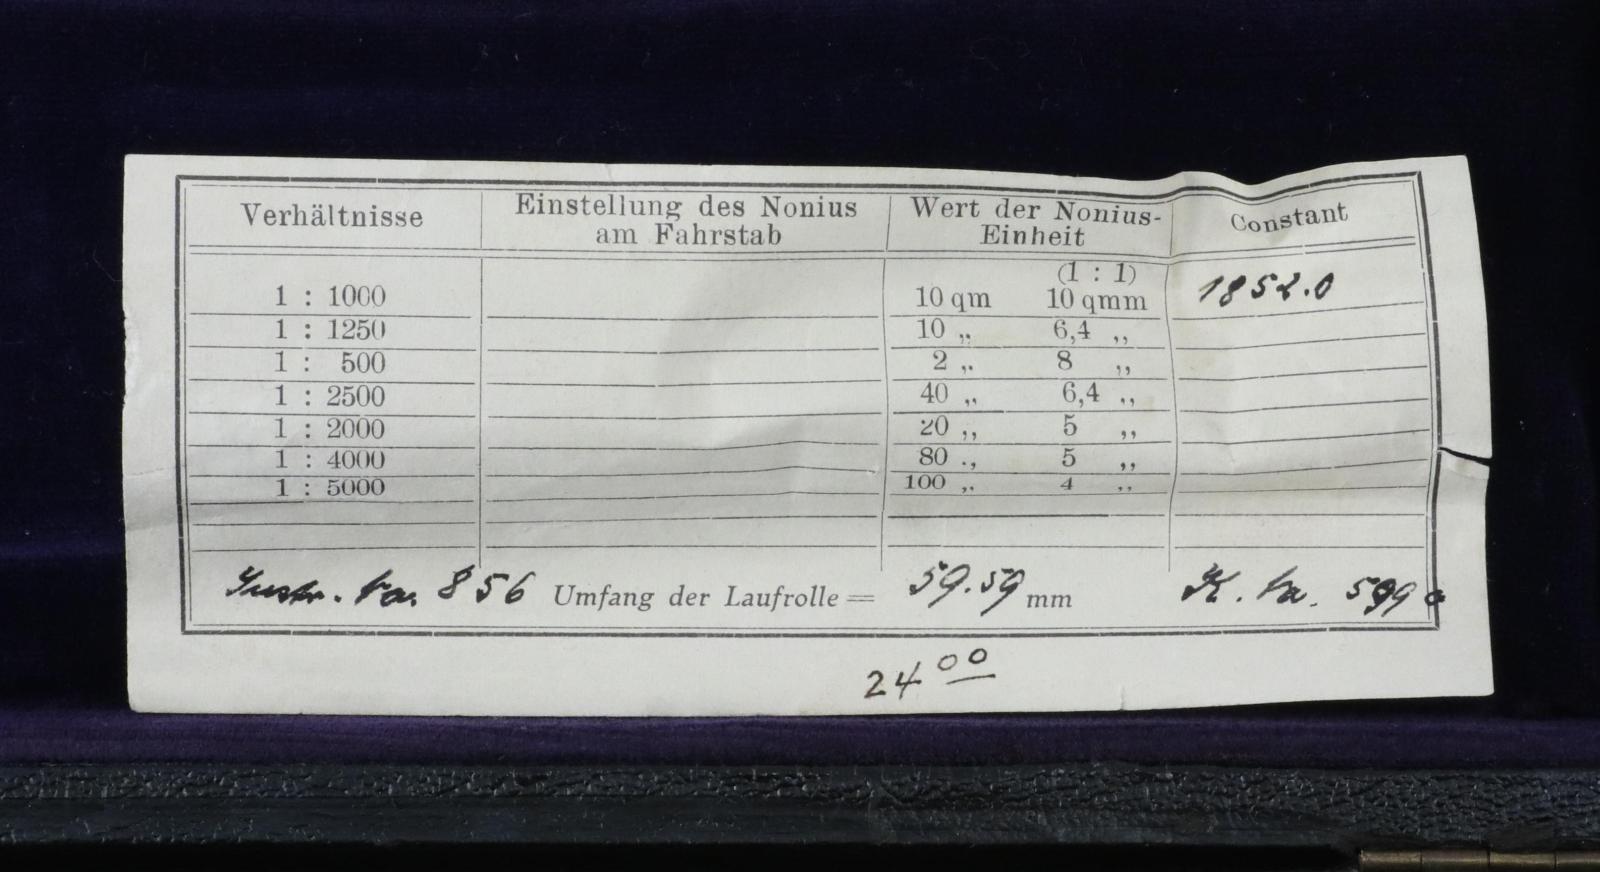 Verhältnisse Einstellung des Nonius am Fahrstab Wert der Nonius-Einheit Constant
(1 : 1)
1 : 1000 10 qm 10 qmm 1852.0
1 : 1250 10 „ 6,4 „
1 : 500 2 „ 8 „
1 : 2500 40 „ 6,4 „
1 : 2000 20 „ 5 „
1 : 4000 80 „ 5 „
1 : 5000 100 „ 4 „
856 Umfang der Laufrolle = 59.59 mm K.
24 00